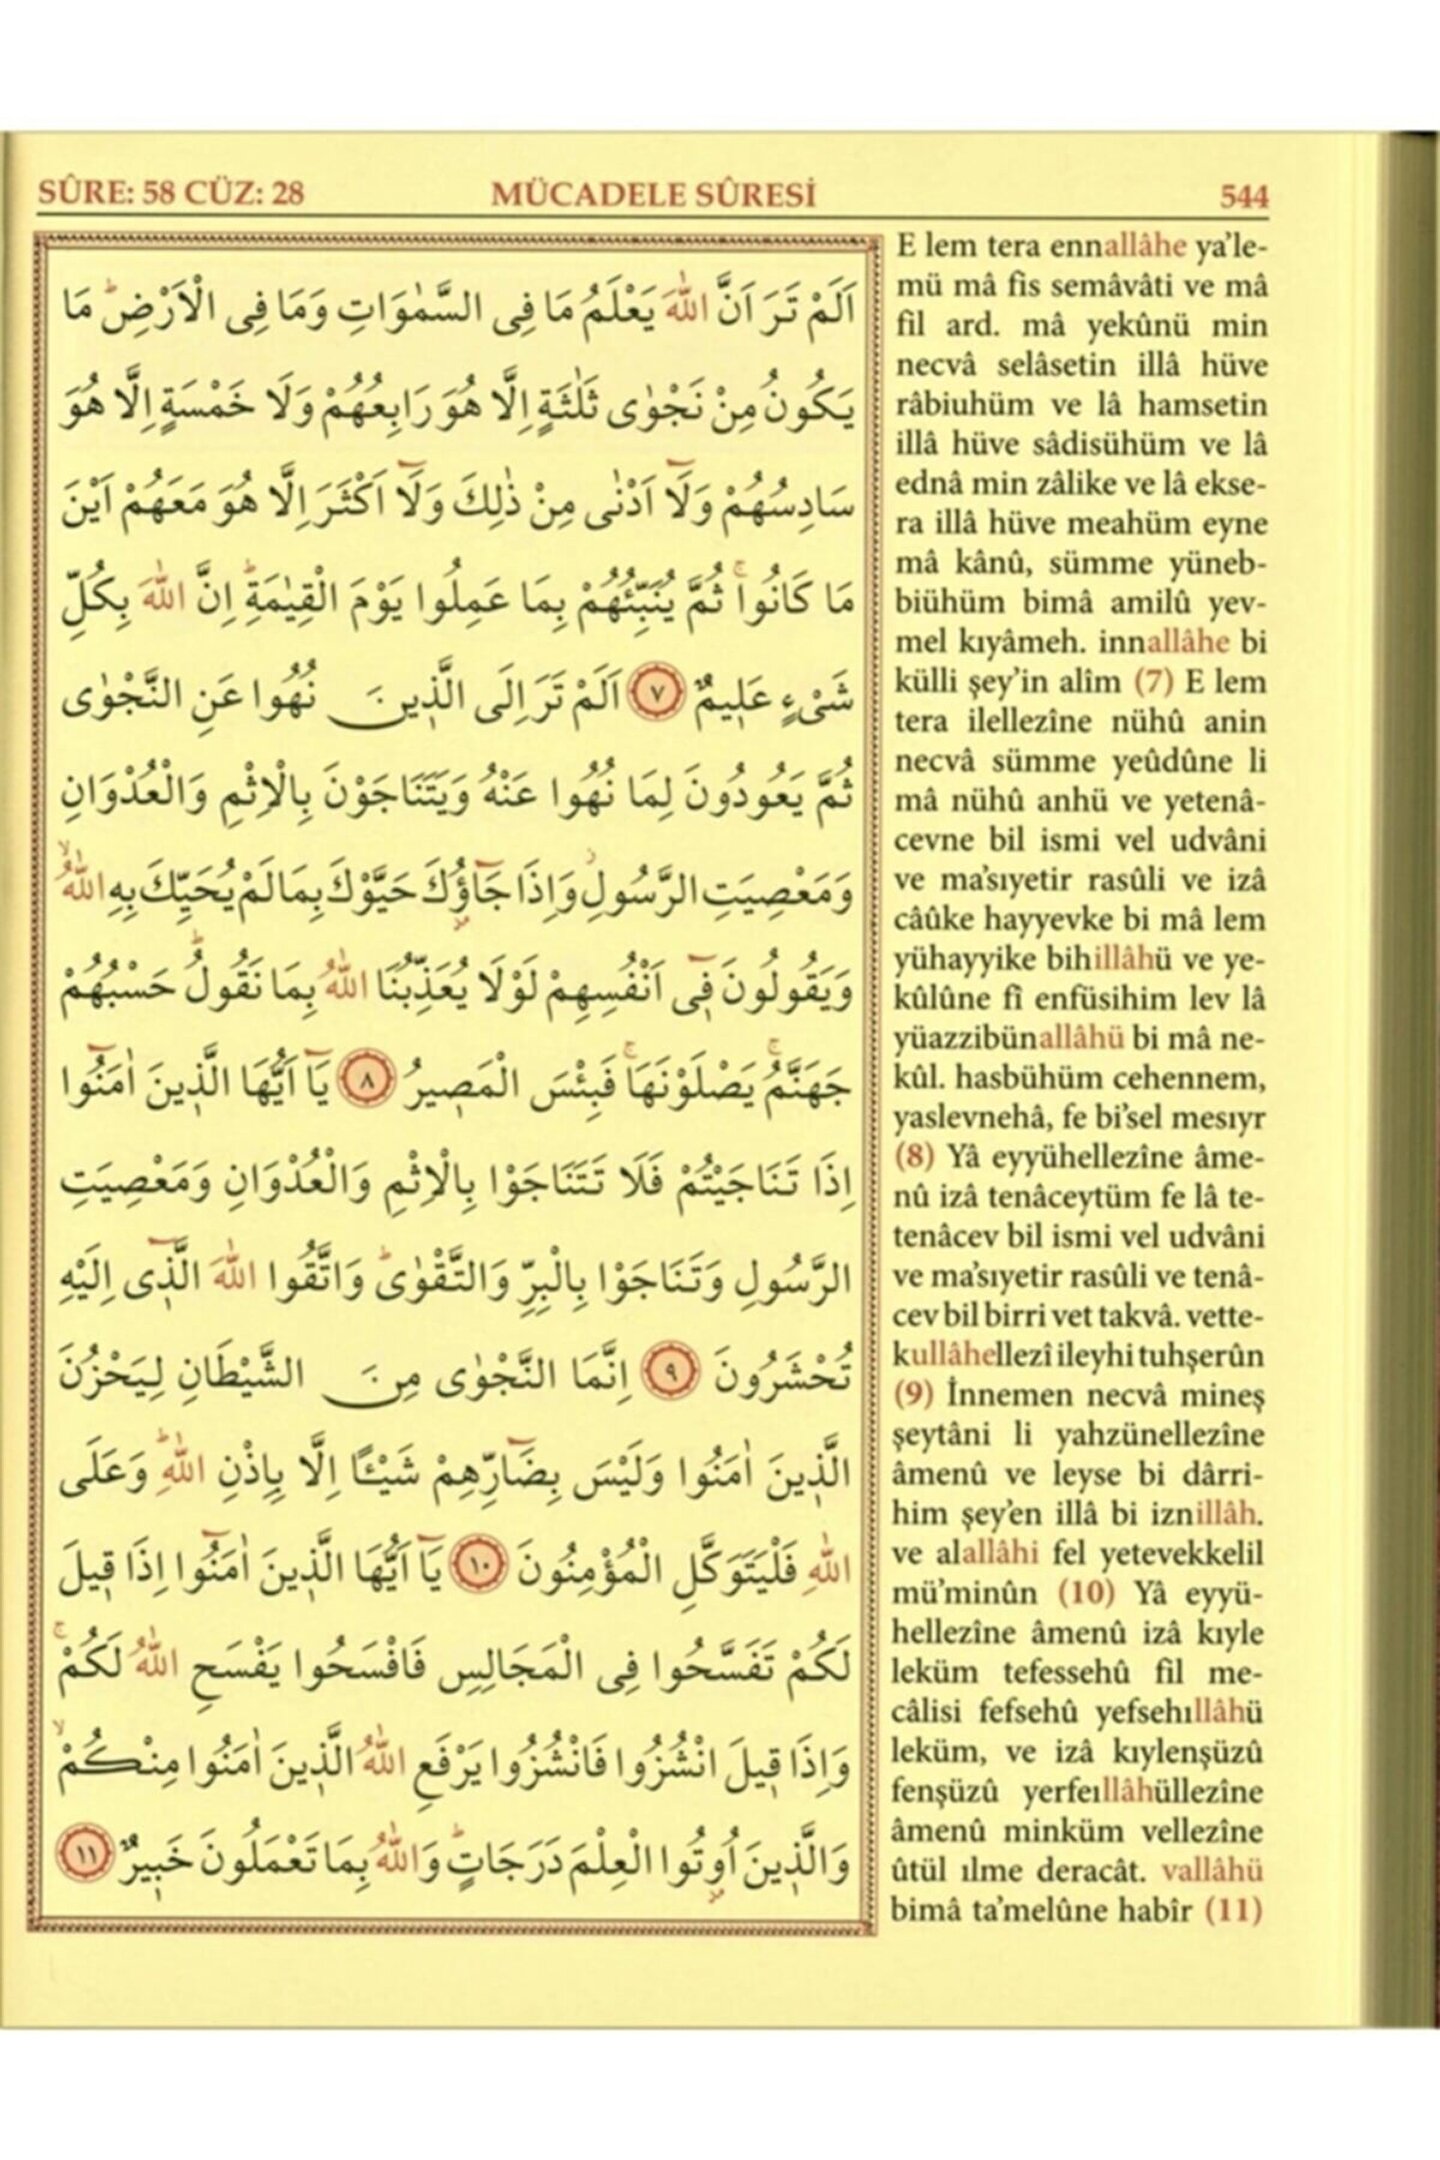 SÛRE: 58 CÜZ: 28
MÜCADELE SÛRESİ
544
اَلَمْ تَرَ اَنَّ اللّٰهَ يَعْلَمُ مَا فِى السَّمٰوَاتِ وَمَا فِى الْاَرْضِۜ مَا
يَكُونُ مِنْ نَجْوٰى ثَلٰثَةٍ اِلَّا هُوَ رَابِعُهُمْ وَلَا خَمْسَةٍ اِلَّا هُوَ
سَادِسُهُمْ وَلَٓا اَدْنٰى مِنْ ذٰلِكَ وَلَٓا اَكْثَرَ اِلَّا هُوَ مَعَهُمْ اَيْنَ
مَا كَانُواۚ ثُمَّ يُنَبِّئُهُمْ بِمَا عَمِلُوا يَوْمَ الْقِيٰمَةِۜ اِنَّ اللّٰهَ بِكُلِّ
شَىْءٍ عَلِيمٌ ﴿٧﴾ اَلَمْ تَرَ اِلَى الَّذِينَ نُهُوا عَنِ النَّجْوٰى
ثُمَّ يَعُودُونَ لِمَا نُهُوا عَنْهُ وَيَتَنَاجَوْنَ بِالْاِثْمِ وَالْعُدْوَانِ
وَمَعْصِيَتِ الرَّسُولِۘ وَاِذَا جَٓاؤُكَ حَيَّوْكَ بِمَا لَمْ يُحَيِّكَ بِهِ اللّٰهُۙ
وَيَقُولُونَ فِٓى اَنْفُسِهِمْ لَوْلَا يُعَذِّبُنَا اللّٰهُ بِمَا نَقُولُۜ حَسْبُهُمْ
جَهَنَّمُۚ يَصْلَوْنَهَاۚ فَبِئْسَ الْمَصِيرُ ﴿٨﴾ يَٓا اَيُّهَا الَّذِينَ اٰمَنُٓوا
اِذَا تَنَاجَيْتُمْ فَلَا تَتَنَاجَوْا بِالْاِثْمِ وَالْعُدْوَانِ وَمَعْصِيَتِ
الرَّسُولِ وَتَنَاجَوْا بِالْبِرِّ وَالتَّقْوٰىۜ وَاتَّقُوا اللّٰهَ الَّذِٓى اِلَيْهِ
تُحْشَرُونَ ﴿٩﴾ اِنَّمَا النَّجْوٰى مِنَ الشَّيْطَانِ لِيَحْزُنَ
الَّذِينَ اٰمَنُوا وَلَيْسَ بِضَٓارِّهِمْ شَيْـًٔا اِلَّا بِاِذْنِ اللّٰهِۜ وَعَلَى
اللّٰهِ فَلْيَتَوَكَّلِ الْمُؤْمِنُونَ ﴿١٠﴾ يَٓا اَيُّهَا الَّذِينَ اٰمَنُٓوا اِذَا قِيلَ
لَكُمْ تَفَسَّحُوا فِى الْمَجَالِسِ فَافْسَحُوا يَفْسَحِ اللّٰهُ لَكُمْۚ
وَاِذَا قِيلَ انْشُزُوا فَانْشُزُوا يَرْفَعِ اللّٰهُ الَّذِينَ اٰمَنُوا مِنْكُمْۙ
وَالَّذِينَ اُوتُوا الْعِلْمَ دَرَجَاتٍۜ وَاللّٰهُ بِمَا تَعْمَلُونَ خَبِيرٌ ﴿١١﴾
E lem tera ennallâhe ya’le-
mü mâ fis semâvâti ve mâ
fil ard. mâ yekûnü min
necvâ selâsetin illâ hüve
râbiuhüm ve lâ hamsetin
illâ hüve sâdisühüm ve lâ
ednâ min zâlike ve lâ ekse-
ra illâ hüve meahüm eyne
mâ kânû, sümme yüneb-
biühüm bimâ amilû yev-
mel kıyâmeh. innallâhe bi
külli şey’in alîm (7) E lem
tera ilellezîne nühû anin
necvâ sümme yeûdûne li
mâ nühû anhü ve yetenâ-
cevne bil ismi vel udvâni
ve ma’sıyetir rasûli ve izâ
câûke hayyevke bi mâ lem
yühayyike bihillâhü ve ye-
kûlûne fî enfüsihim lev lâ
yüazzibünallâhü bi mâ ne-
kûl. hasbühüm cehennem,
yaslevnehâ, fe bi’sel mesıyr
(8) Yâ eyyühellezîne âme-
nû izâ tenâceytüm fe lâ te-
tenâcev bil ismi vel udvâni
ve ma’sıyetir rasûli ve tenâ-
cev bil birri vet takvâ. vette-
kullâhellezî ileyhi tuhşerûn
(9) İnnemen necvâ mineş
şeytâni li yahzünellezîne
âmenû ve leyse bi dârri-
him şey’en illâ bi iznillâh.
ve alallâhi fel yetevekkelil
mü’minûn (10) Yâ eyyü-
hellezîne âmenû izâ kıyle
leküm tefessehû fil me-
câlisi fefsehû yefsehıllâhü
leküm, ve izâ kıylenşüzû
fenşüzû yerfeıllâhüllezîne
âmenû minküm vellezîne
ûtül ılme deracât. vallâhü
bimâ ta’melûne habîr (11)